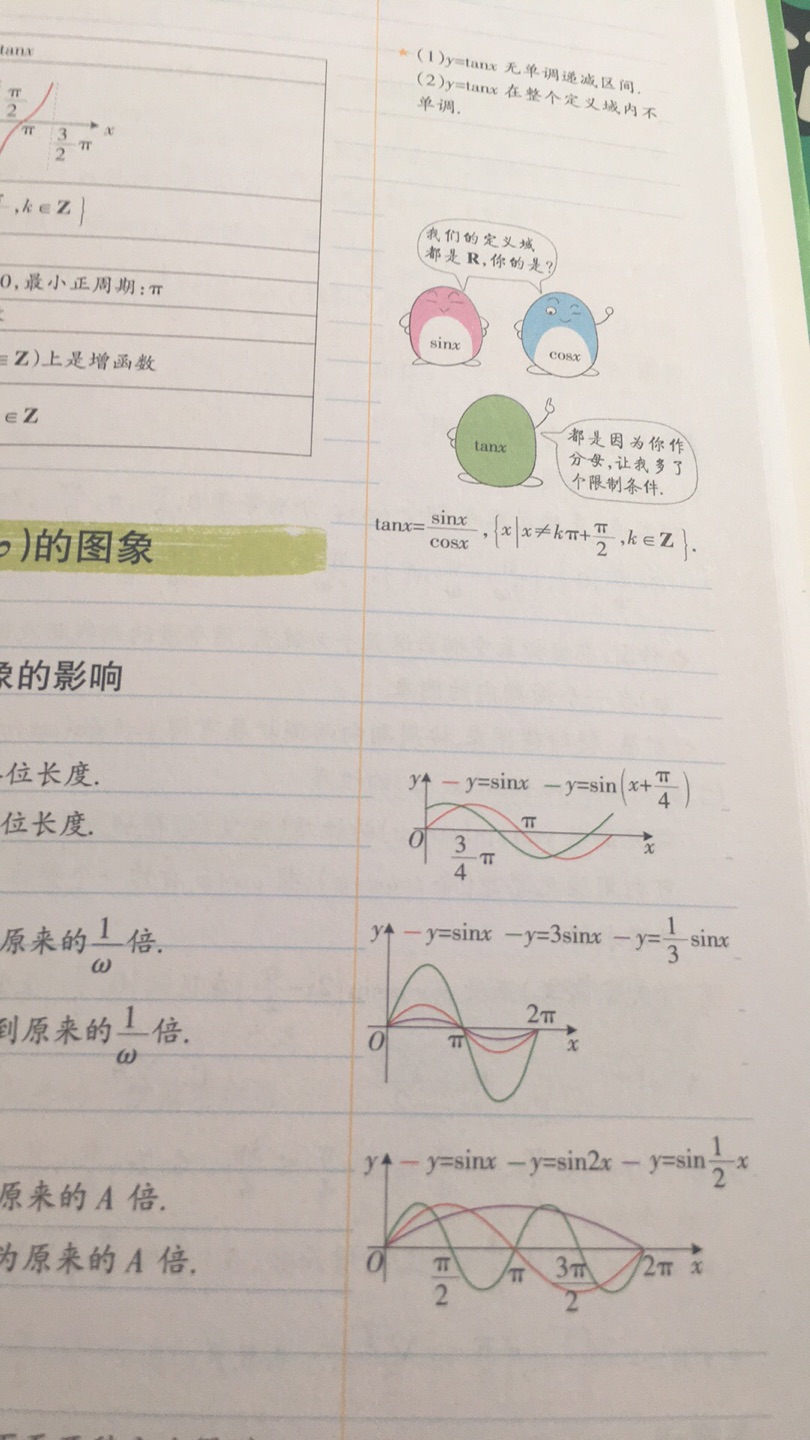 tanx
π/2
π
3/2 π
x
,k∈Z}
0,最小正周期:π
Z)上是增函数
∈Z
)的图象
的影响
位长度.
位长度.
原来的1/ω倍.
到原来的1/ω倍.
原来的 A 倍.
为原来的 A 倍.
★ (1)y=tanx 无单调递减区间.
(2)y=tanx 在整个定义域内不
单调.
我们的定义域
都是 R,你的是?
sinx
cosx
tanx
都是因为你作
分母,让我多了
个限制条件.
tanx=sinx/cosx,{x|x≠kπ+π/2,k∈Z}.
y — y=sinx — y=sin(x+π/4)
π
O
3/4 π
x
y — y=sinx — y=3sinx — y=1/3 sinx
2π
O
π
x
y — y=sinx — y=sin2x — y=sin1/2 x
O
π/2
π
3π/2
2π
x